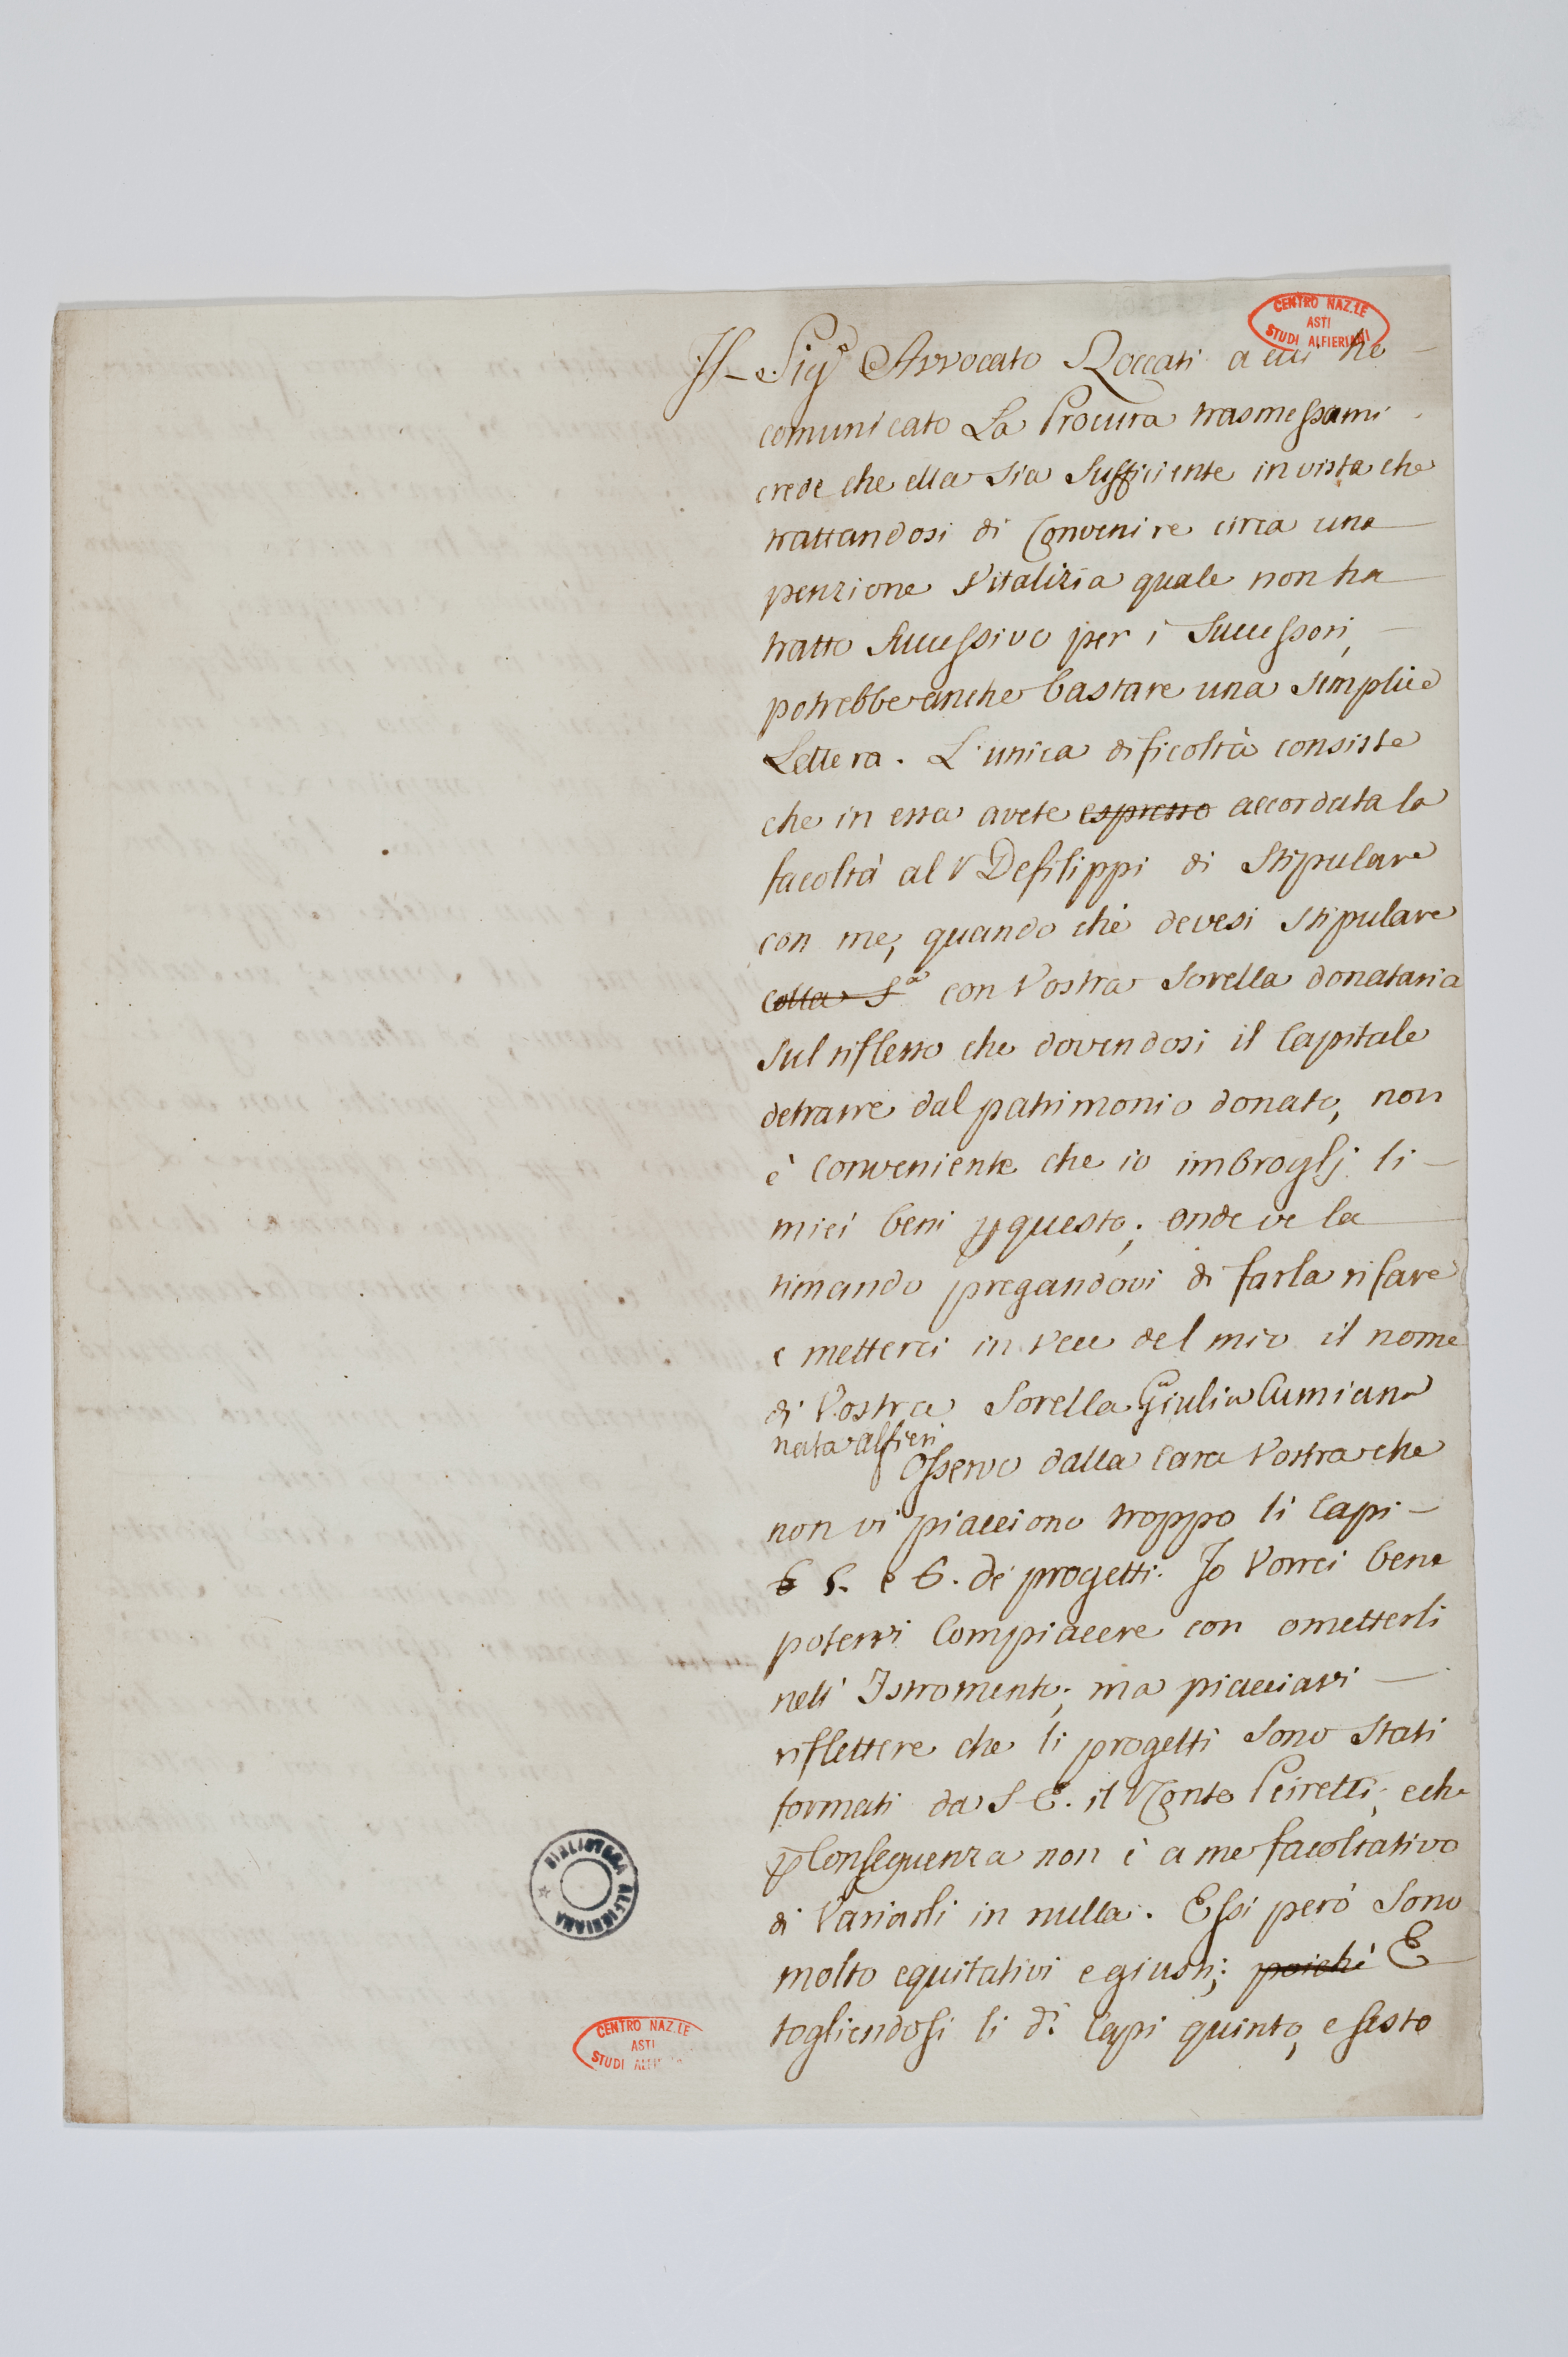 CENTRO NAZ.LE
ASTI
STUDI ALFIERIANI
Il Sig.r Avvocato Roccati a cui ho
comunicato La Procura trasmessami
crede che ella sia sufficiente in vista che
trattandosi di Convenire circa una
penzione Vitalizia quale non ha
tratto successivo per i successori,
potrebbe anche bastare una semplice
Lettera. L'unica dificoltà consiste
che in essa avete espresso accordata la
facoltà al V Defilippi di stipulare
con me, quando che devesi stipulare
colla S.a con Vostra Sorella donataria
sul riflesso che dovendosi il Capitale
detrarre dal patrimonio donato, non
è Conveniente che io imbroglj li
miei beni p questo; onde ve la
rimando pregandovi di farla rifare
e metterci in vece del mio il nome
di Vostra Sorella Giulia Cumiana
nata alfieri
Osservo dalla Cara Vostra che
non vi piacciono troppo li Capi
6 5. e 6. de' progetti. Io Vorrei bene
potervi Compiacere con ometterli
nell' Istromento; ma piacciavi
riflettere che li progetti sono stati
formati da S. E. il Conte Peiretti, e che
p Conseguenza non è a me facoltativo
di Variarli in nulla. Essi però sono
molto equitativi e giusti; poiché E
togliendosi li d.i Capi quinto, e sesto
BIBLIOTECA ALFIERIANA
CENTRO NAZ.LE
ASTI
STUDI